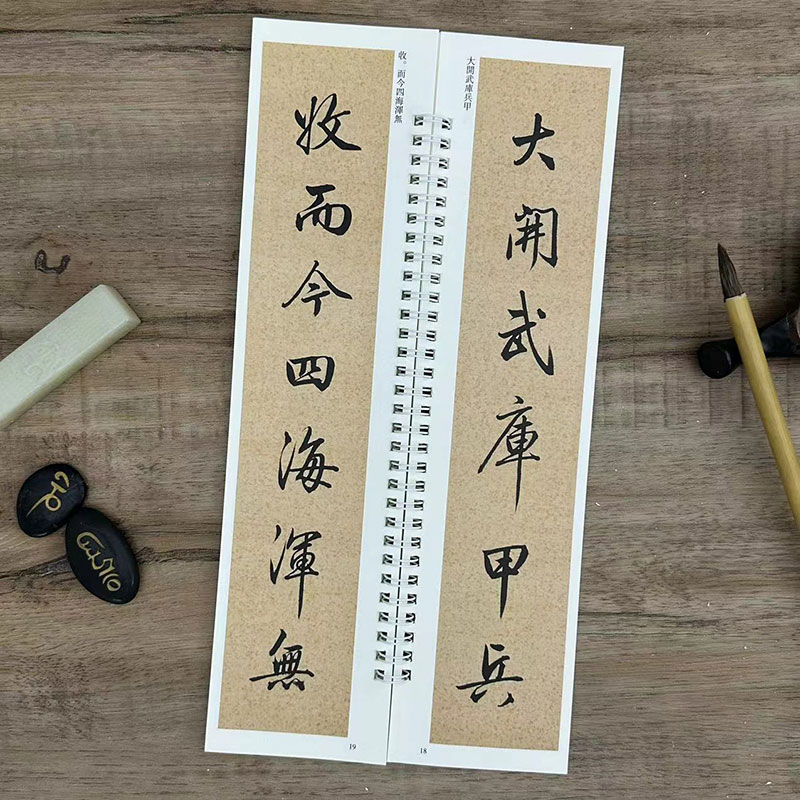 大開武庫兵甲
大開武庫甲兵
18
收。而今四海渾無
收而今四海渾無
19